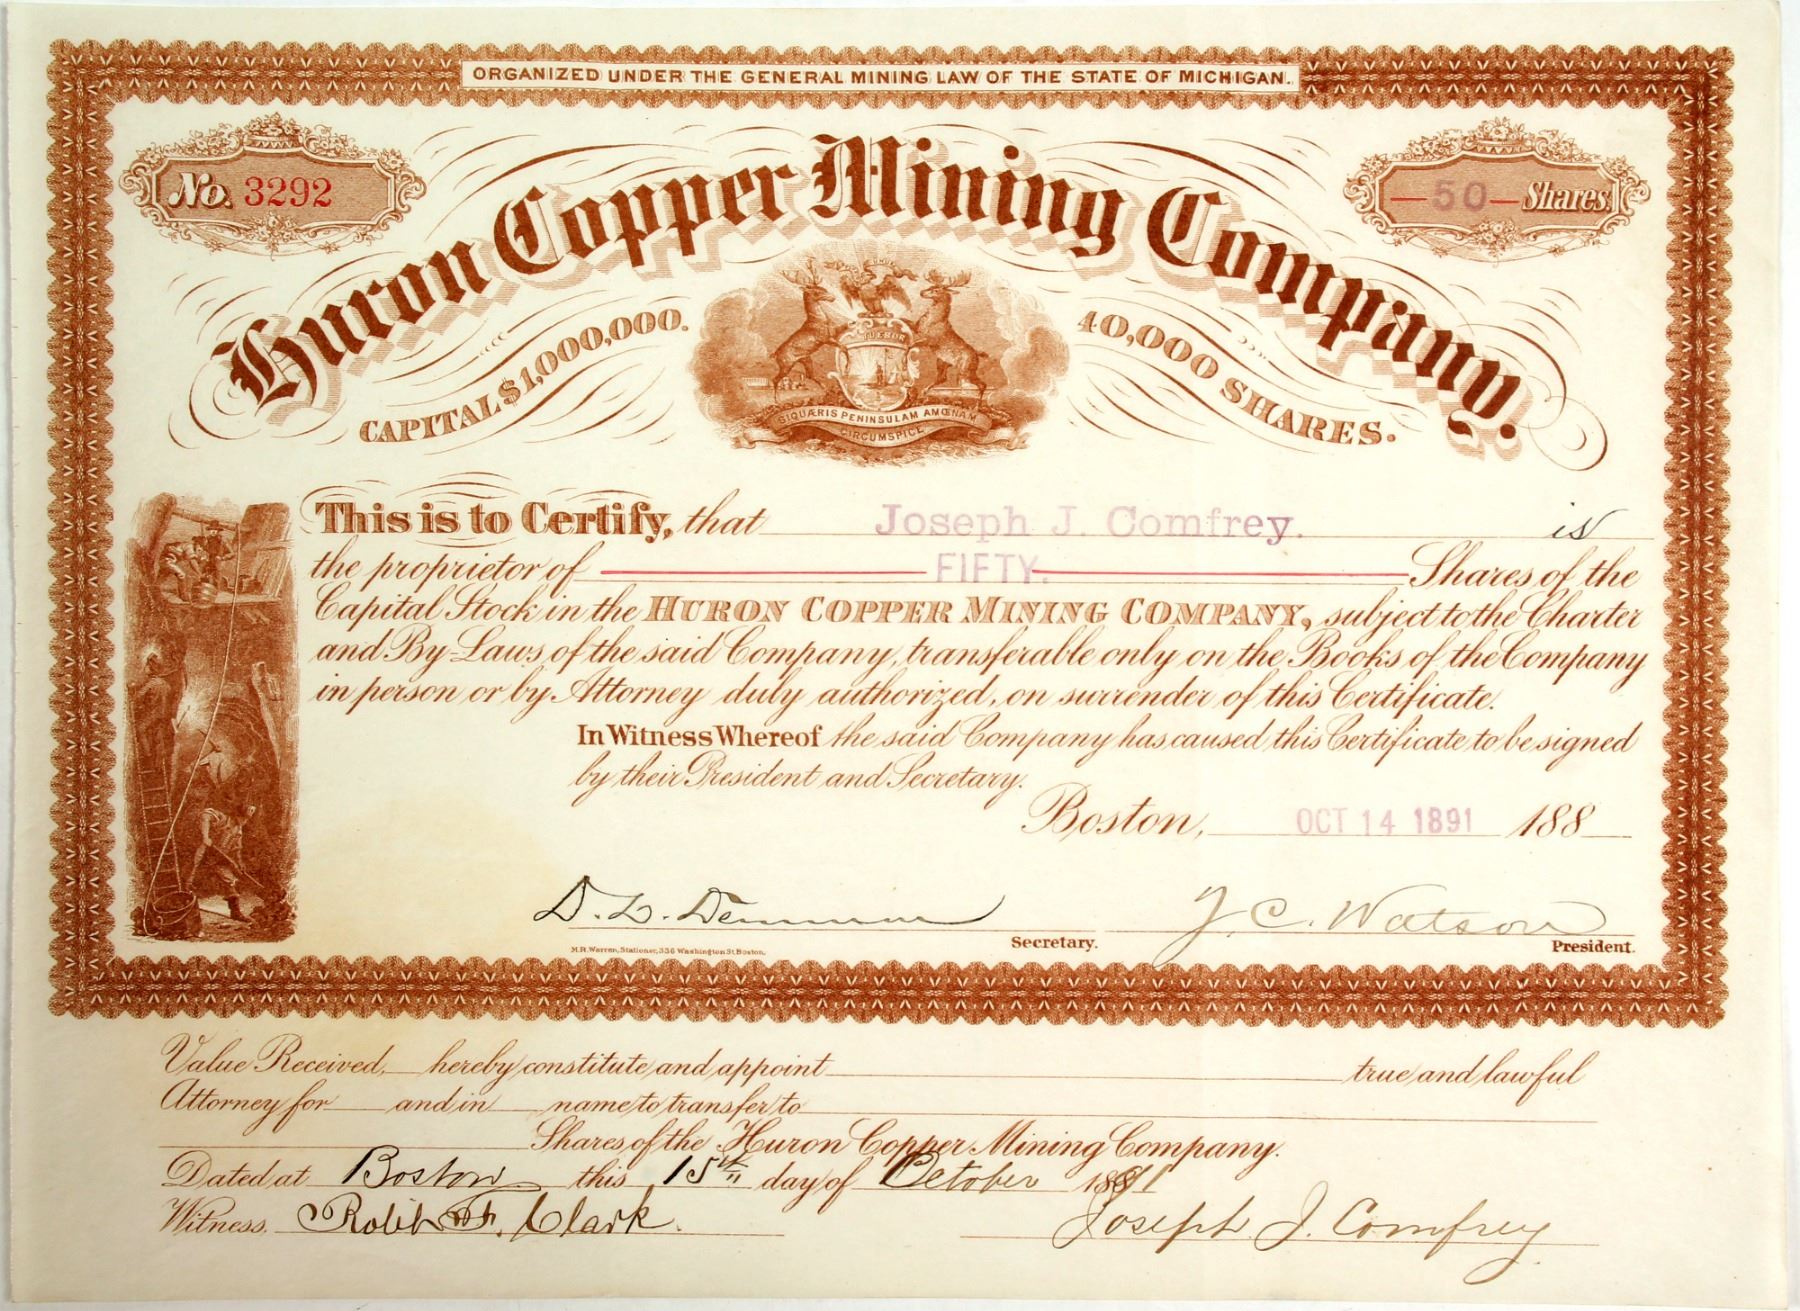 ORGANIZED UNDER THE GENERAL MINING LAW OF THE STATE OF MICHIGAN.
No. 3292
—50— Shares.
Huron Copper Mining Company.
CAPITAL $1,000,000.
40,000 SHARES.
TUEBOR
SI QUÆRIS PENINSULAM AMŒNAM
CIRCUMSPICE
This is to Certify, that Joseph J. Comfrey. is
the proprietor of FIFTY. Shares of the
Capital Stock in the HURON COPPER MINING COMPANY, subject to the Charter
and By-Laws of the said Company, transferable only on the Books of the Company
in person or by Attorney duly authorized, on surrender of this Certificate.
In Witness Whereof the said Company has caused this Certificate to be signed
by their President and Secretary.
Boston, OCT 14 1891 188
D. L. Demmon
J. C. Watson
Secretary.
President.
M.R. Warren, Stationer, 336 Washington St. Boston.
Value Received, hereby constitute and appoint true and lawful
Attorney for and in name to transfer to
Shares of the Huron Copper Mining Company.
Dated at Boston this 15th day of October 1891
Witness, F. Clark.
Joseph J. Comfrey